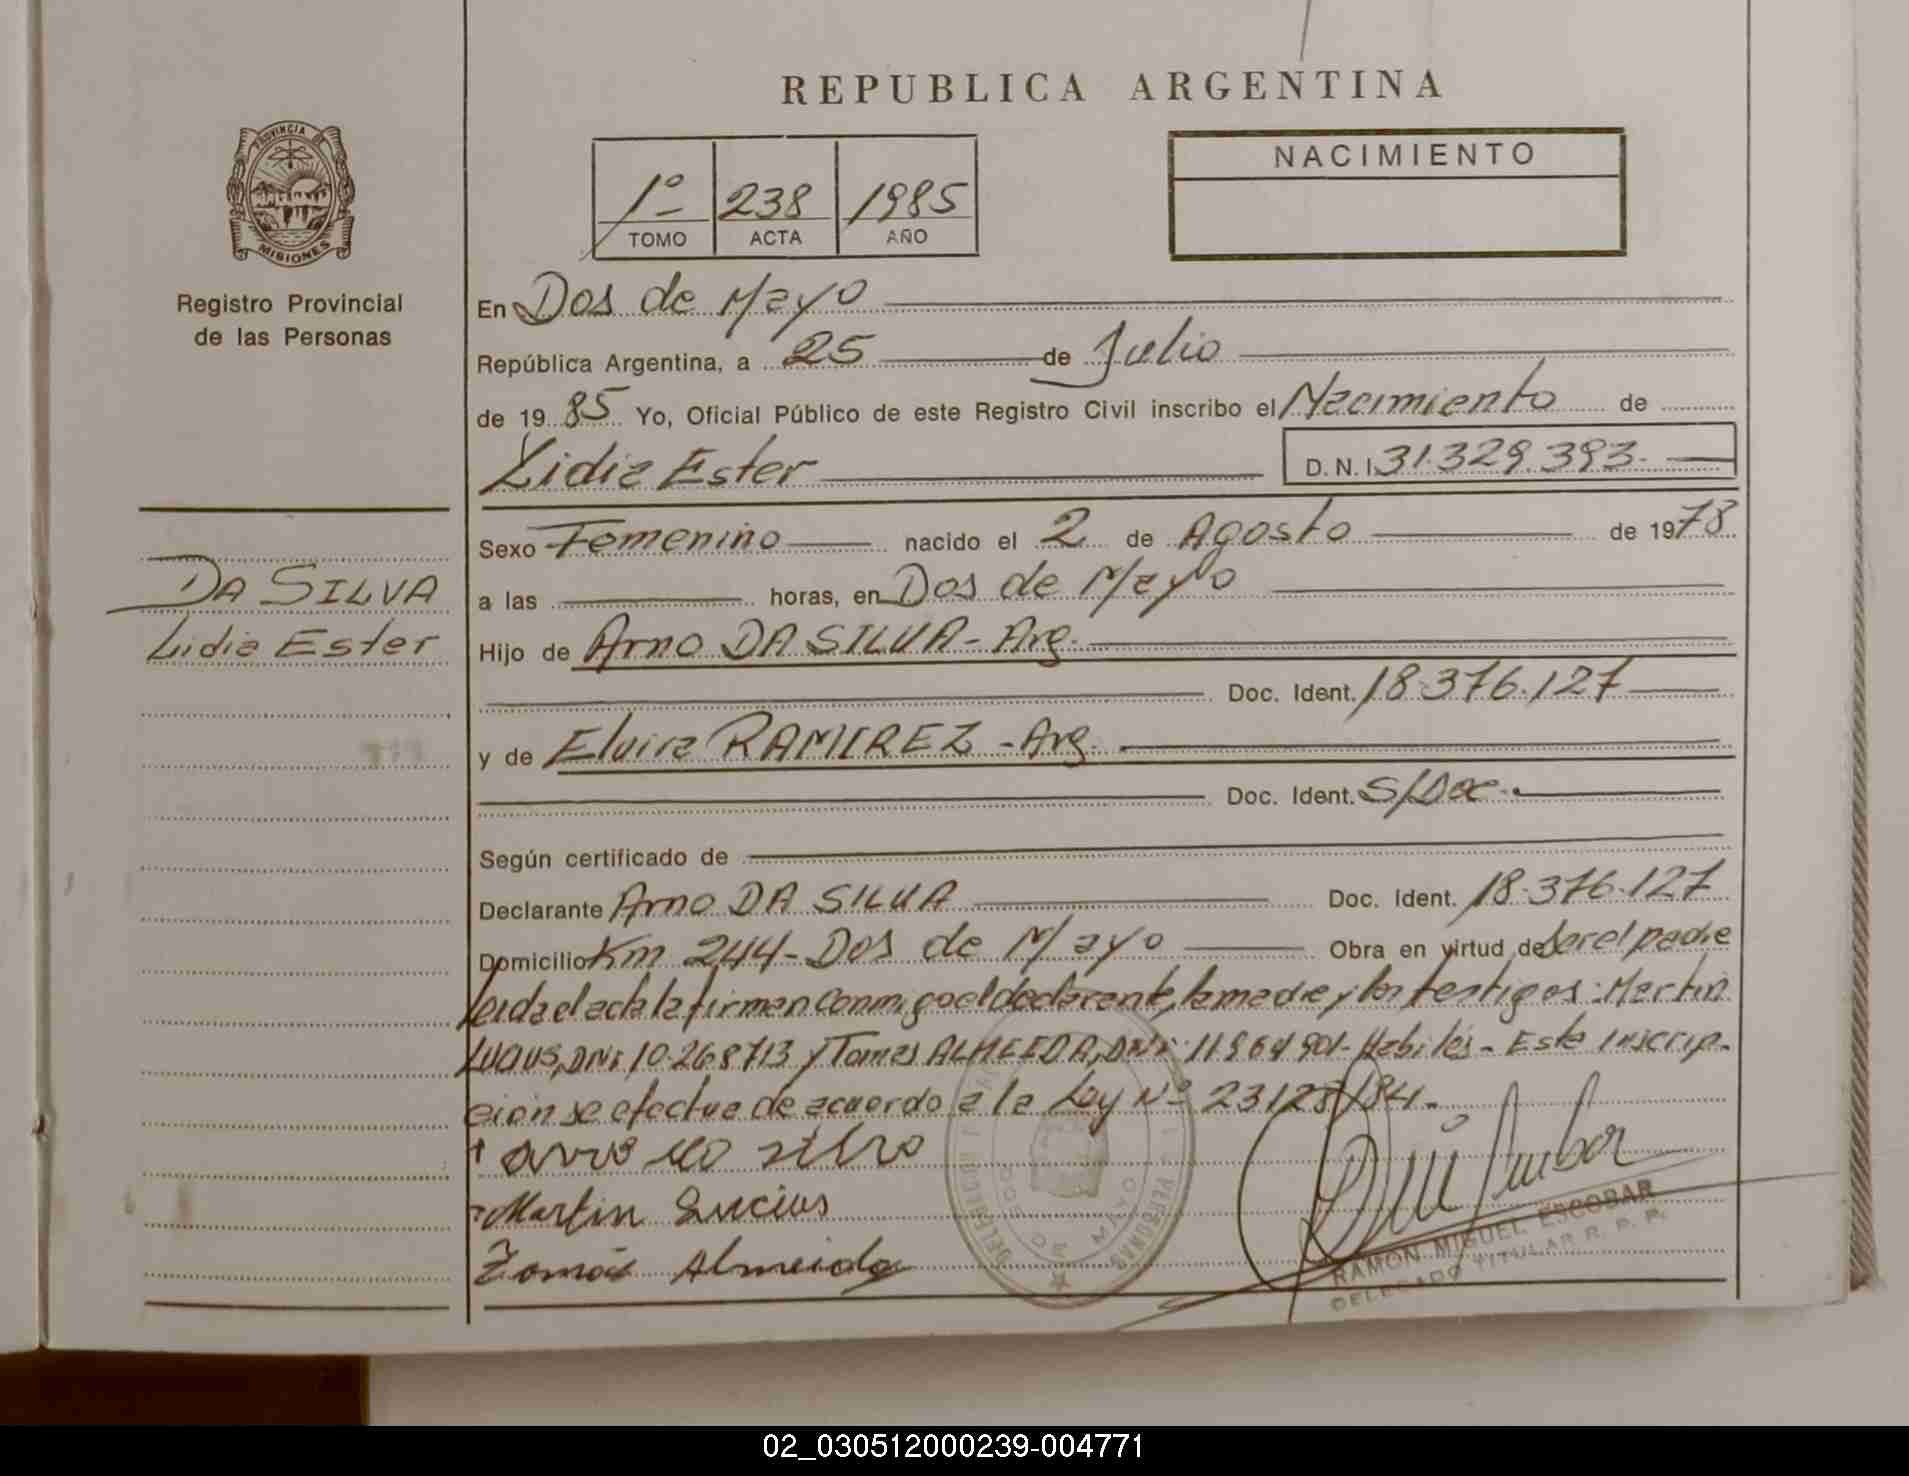 REPUBLICA ARGENTINA
PROVINCIA DE
MISIONES
Registro Provincial
de las Personas
1º 238 1985
TOMO ACTA AÑO
NACIMIENTO
En Dos de Mayo
República Argentina, a 25 de Julio
de 1985 Yo, Oficial Público de este Registro Civil inscribo el Nacimiento de
Lidia Ester D.N.I. 31.329.393.
DA SILVA
Lidia Ester
Sexo Femenino nacido el 2 de Agosto de 1978
a las horas, en Dos de Mayo
Hijo de Arno DA SILVA - Arg.
Doc. Ident. 18.376.127
y de Elvira RAMIREZ - Arg.
Doc. Ident. S/Doc.
Según certificado de
Declarante Arno DA SILVA Doc. Ident. 18.376.127
Domicilio Km 244 - Dos de Mayo Obra en virtud de Ser el padre
Leida el acta la firman conmigo el declarante, la madre y los testigos: Martin
DNI: 10.268713 y Tomas ALMEEDA, DNI: Habiles - Esta inscrip-
cion se efectua de acuerdo a la Ley Nº 23128/84.
Martin Lucius
Tomás Almeida
DELEGACION
PERSONAS
DOS DE MAYO
RAMON MIGUEL ESCOBAR
DELEGADO TITULAR R. P. P.
02_030512000239-004771